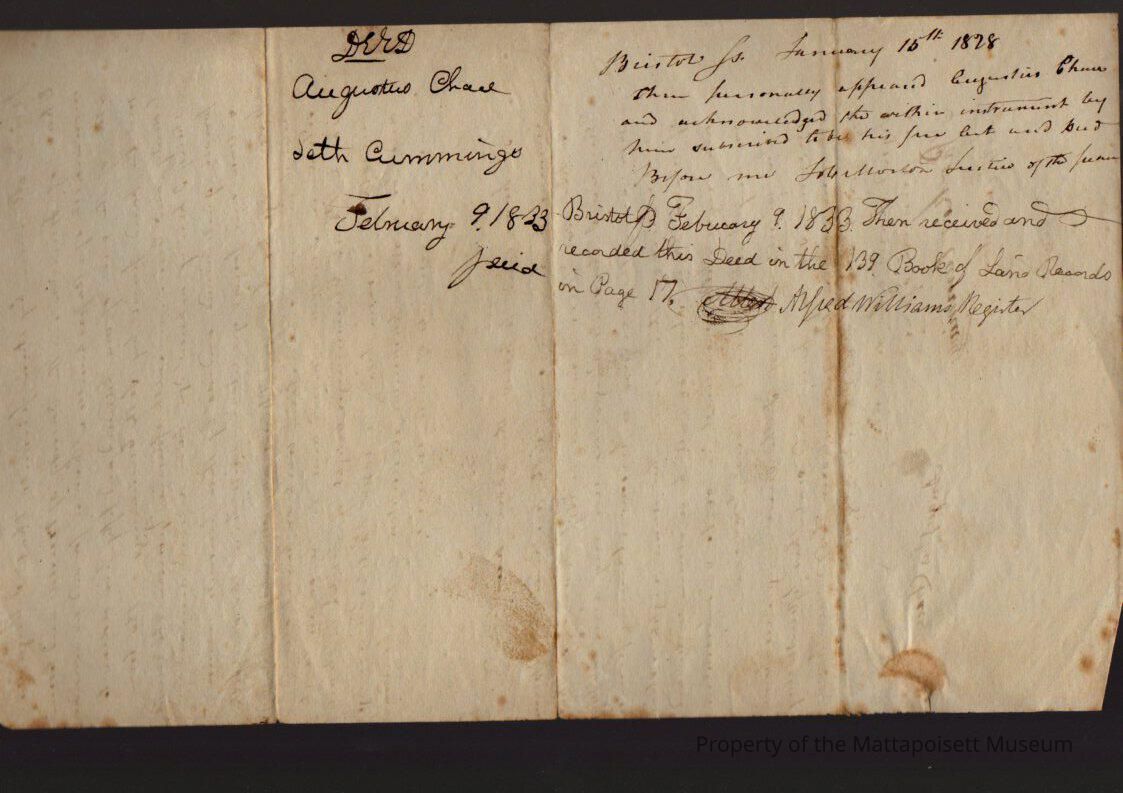 DEED
Augustus Chace
Seth Cummings
February 9. 1833
Bristol Ss. January 15th 1828
then personally appeard Augustus Chace
and acknowledged the within instrument by
him subscribed to be his free act and deed
Before me Job Morton Justice of the peace
Bristol Ss February 9. 1833. Then received and
recorded this Deed in the 139 Book of Land Records
in Page 17. Attest Alfred Williams, Register
Property of the Mattapoisett Museum